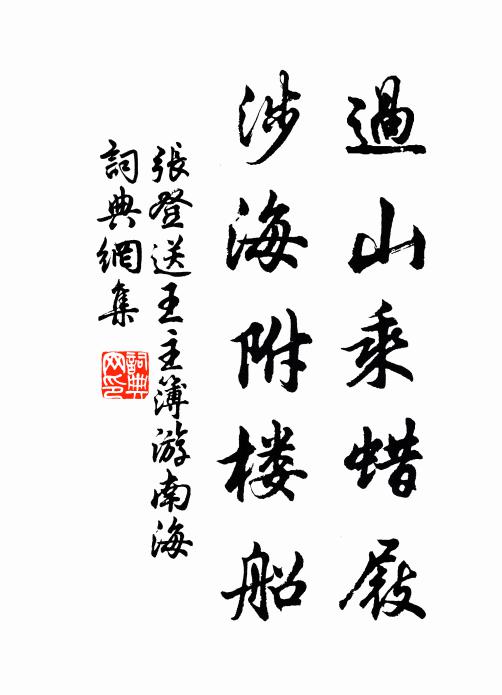 過山乘蜡屐
涉海附楼船
張登送王主簿游南海
詞典網集
詞典网印